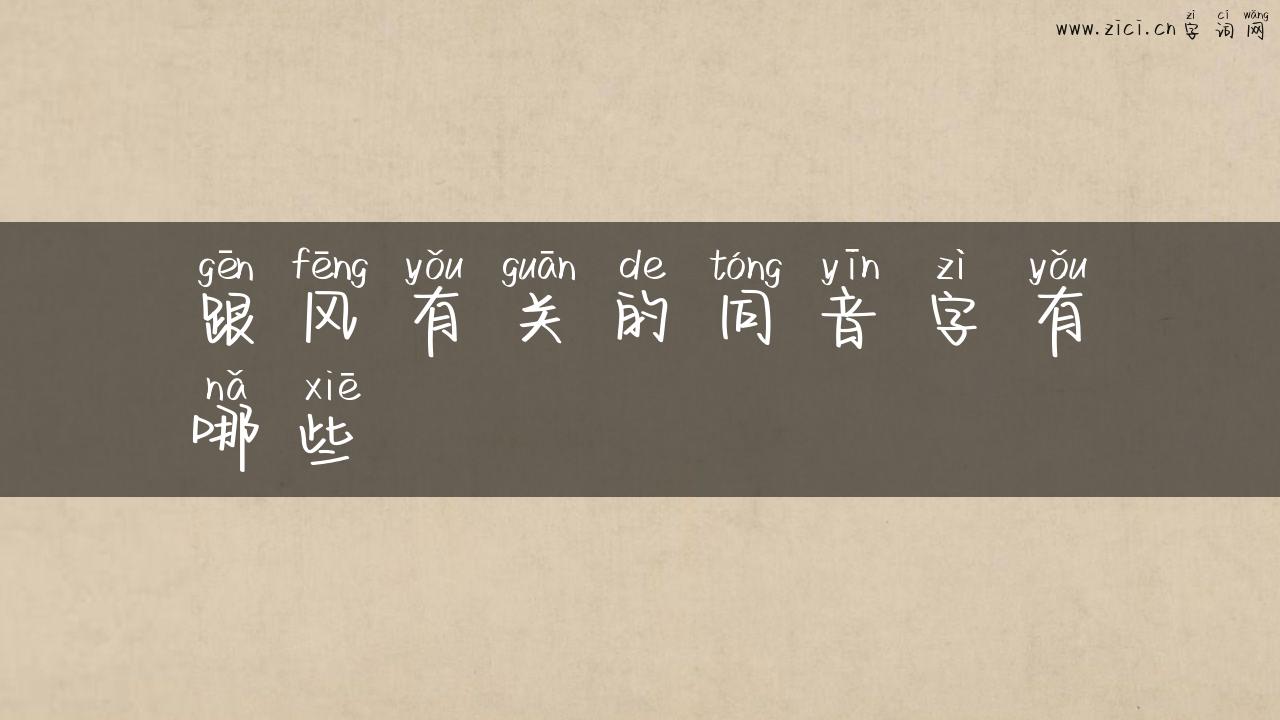 zì cí wǎng
www.zici.cn 字词网
gēn fēng yǒu guān de tóng yīn zì yǒu
跟风有关的同音字有
nǎ xiē
哪些